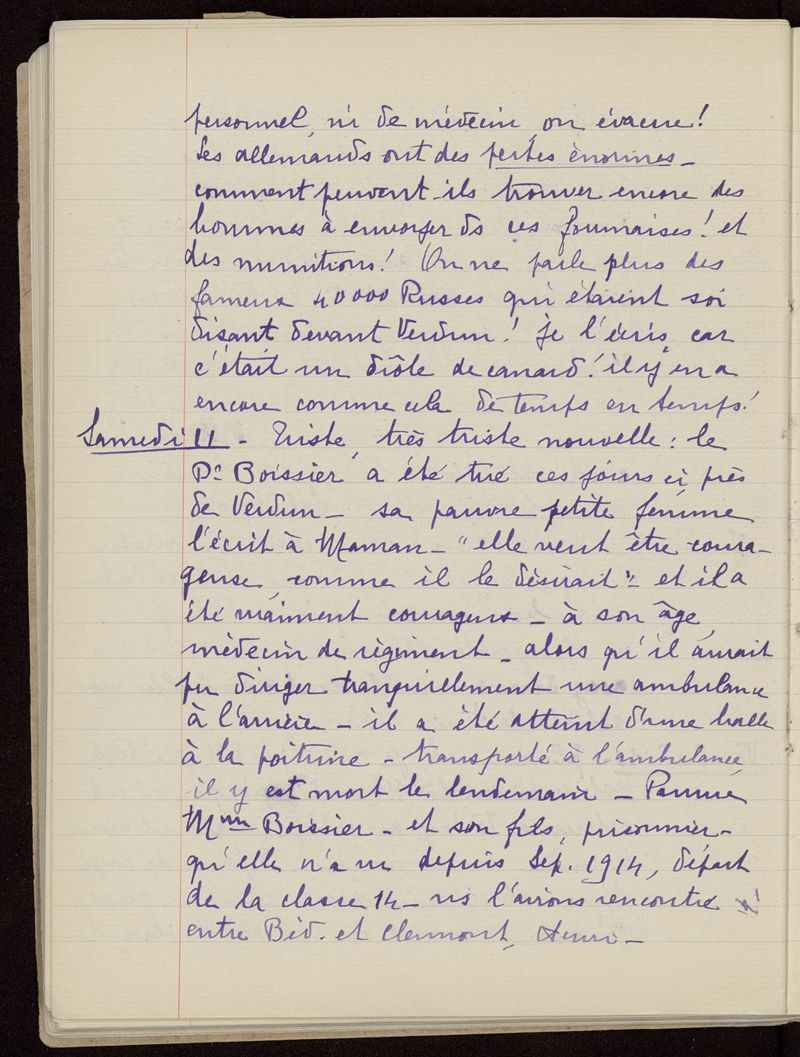 personnel, ni de médecin, on évacue !
Les allemands ont des pertes énormes -
comment peuvent-ils trouver encore des
hommes à envoyer ds ces fournaises ! et
des munitions ! On ne parle plus des
fameux 40000 Russes qui étaient soi
disant devant Verdun ! je l'écris, car
c'était un drôle de canard ! il y en a
encore comme cela de temps en temps !
Samedi 11 - Triste, très triste nouvelle : le
Dr Boissier a été tué ces jours ci près
de Verdun - sa pauvre petite femme
l'écrit à Maman - "elle veut être coura-
geuse, comme il le désirait" - et il a
été vraiment courageux - à son âge,
médecin de régiment - alors qu'il aurait
pu diriger tranquillement une ambulance
à l'arrière - il a été atteint d'une balle
à la poitrine - transporté à l'ambulance,
il y est mort le lendemain - Pauvre
Mme Boissier - et son fils, prisonnier -
qu'elle n'a vu depuis Sep. 1914, départ
de la classe 14 - ns l'avions rencontré
entre Béd. et Clermont, Henri -